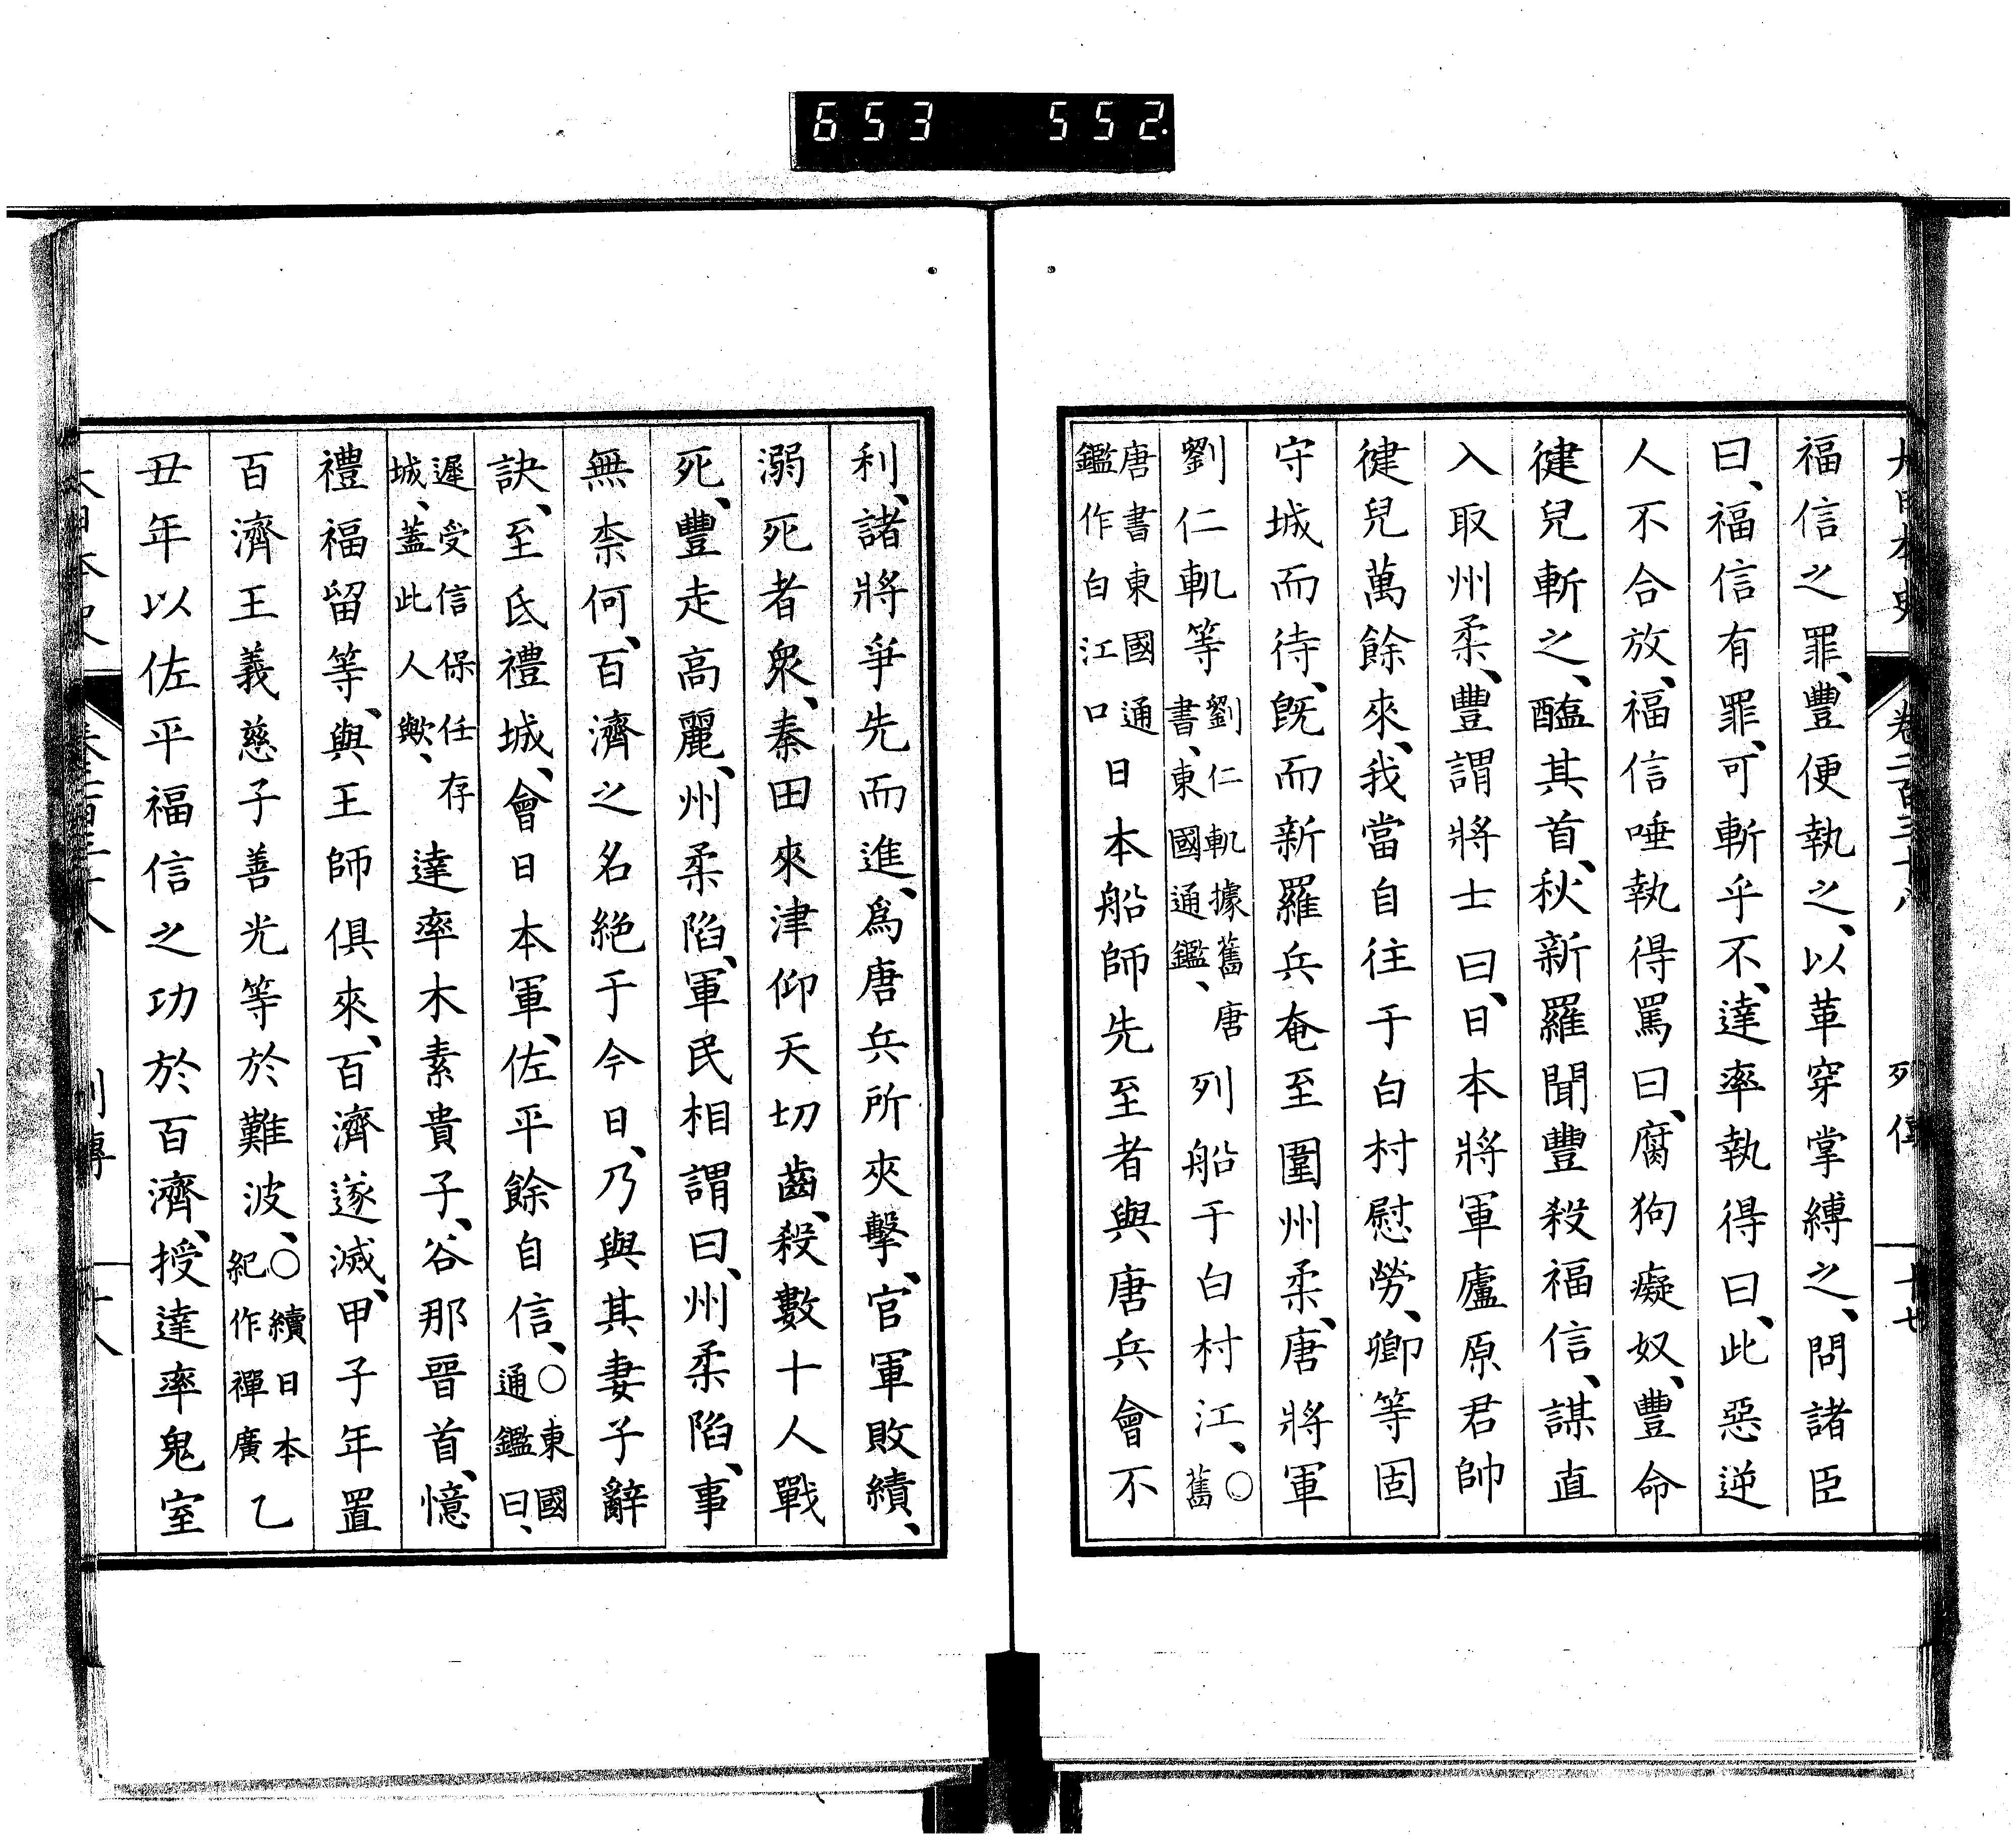 653 552
大日本史 卷二百三十八 列傳 十七
福信之罪、豐便執之、以革穿掌縛之、問諸臣
曰、福信有罪、可斬乎不、達率執得曰、此惡逆
人不合放、福信唾執得罵曰、腐狗癡奴、豐命
健兒斬之、醢其首、秋、新羅聞豐殺福信、謀直
入取州柔、豐謂將士曰、日本將軍廬原君帥
健兒萬餘來、我當自往于白村慰勞、卿等固
守城而待、旣而新羅兵奄至圍州柔、唐將軍
劉仁軌等劉仁軌據舊唐書、東國通鑑、列船于白村江、○舊
唐書東國通鑑作白江口日本船師先至者與唐兵會不
利、諸將爭先而進、爲唐兵所夾擊、官軍敗績、
溺死者衆、秦田來津仰天切齒、殺數十人戰
死、豐走高麗、州柔陷、軍民相謂曰、州柔陷、事
無柰何、百濟之名絶于今日、乃與其妻子辭
訣、至氐禮城、會日本軍、佐平餘自信、○東國通鑑曰、
遲受信保任存城、蓋此人歟、達率木素貴子、谷那晉首、憶
禮福留等、與王師俱來、百濟遂滅、甲子年置
百濟王義慈子善光等於難波、○續日本紀作禪廣乙
丑年以佐平福信之功於百濟、授達率鬼室